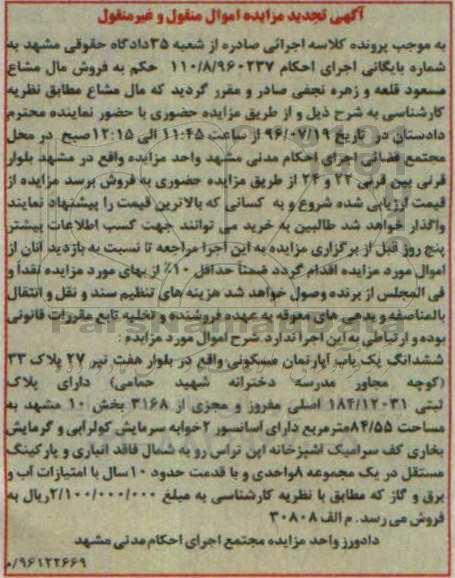 آگهی تجدید مزایده اموال منقول و غیرمنقول
به موجب پرونده کلاسه اجرائی صادره از شعبه ۳۵دادگاه حقوقی مشهد به
شماره بایگانی اجرای احکام ۱۱۰/۸/۹۶۰۲۳۷ حکم به فروش مال مشاع
مسعود قلعه و زهره نجفی صادر و مقرر گردید که مال مشاع مطابق نظریه
کارشناسی به شرح ذیل و از طریق مزایده حضوری با حضور نماینده محترم
دادستان در تاریخ ۹۶/۰۷/۱۹ از ساعت ۱۱:۴۵ الی ۱۲:۱۵صبح در محل
مجتمع قضائی اجرای احکام مدنی مشهد واحد مزایده واقع در مشهد بلوار
قرنی بین قرنی ۲۲ و ۲۴ از طریق مزایده حضوری به فروش برسد مزایده از
قیمت ارزیابی شده شروع و به کسانی که بالاترین قیمت را پیشنهاد نمایند
واگذار خواهد شد طالبین به خرید می توانند جهت کسب اطلاعات بیشتر
پنج روز قبل از برگزاری مزایده به این اجرا مراجعه تا نسبت به بازدید آنان از
اموال مورد مزایده اقدام گردد ضمناً حداقل ۱۰٪ از بهای مورد مزایده نقداً و
فی المجلس از برنده وصول خواهد شد هزینه های تنظیم سند و نقل و انتقال
بالمناصفه و بدهی های معوقه به عهده فروشنده و تخلیه تابع مقررات قانونی
بوده و ارتباطی به این اجرا ندارد.شرح اموال مورد مزایده :
ParsNamadData
ششدانگ یک باب آپارتمان مسکونی واقع در بلوار هفت تیر ۲۷ پلاک ۳۳
(کوچه مجاور مدرسه دخترانه شهید حمامی) دارای پلاک
ثبتی ۱۸۴/۱۲۰۳۱ اصلی مفروز و مجزی از ۳۱۶۸ بخش ۱۰ مشهد به
مساحت ۸۴/۵۵مترمربع دارای آسانسور ۲خوابه سرمایش کولرآبی و گرمایش
بخاری کف سرامیک آشپزخانه اپن تراس رو به شمال فاقد انباری و پارکینگ
مستقل در یک مجموعه ۸واحدی و با قدمت حدود ۱۰سال با امتیازات آب و
برق و گاز که مطابق با نظریه کارشناسی به مبلغ ۲/۱۰۰/۰۰۰/۰۰۰ریال به
فروش می رسد. م الف ۳۰۸۰۸
دادورز واحد مزایده مجتمع اجرای احکام مدنی مشهد
/۹۶۱۲۲۶۶۹